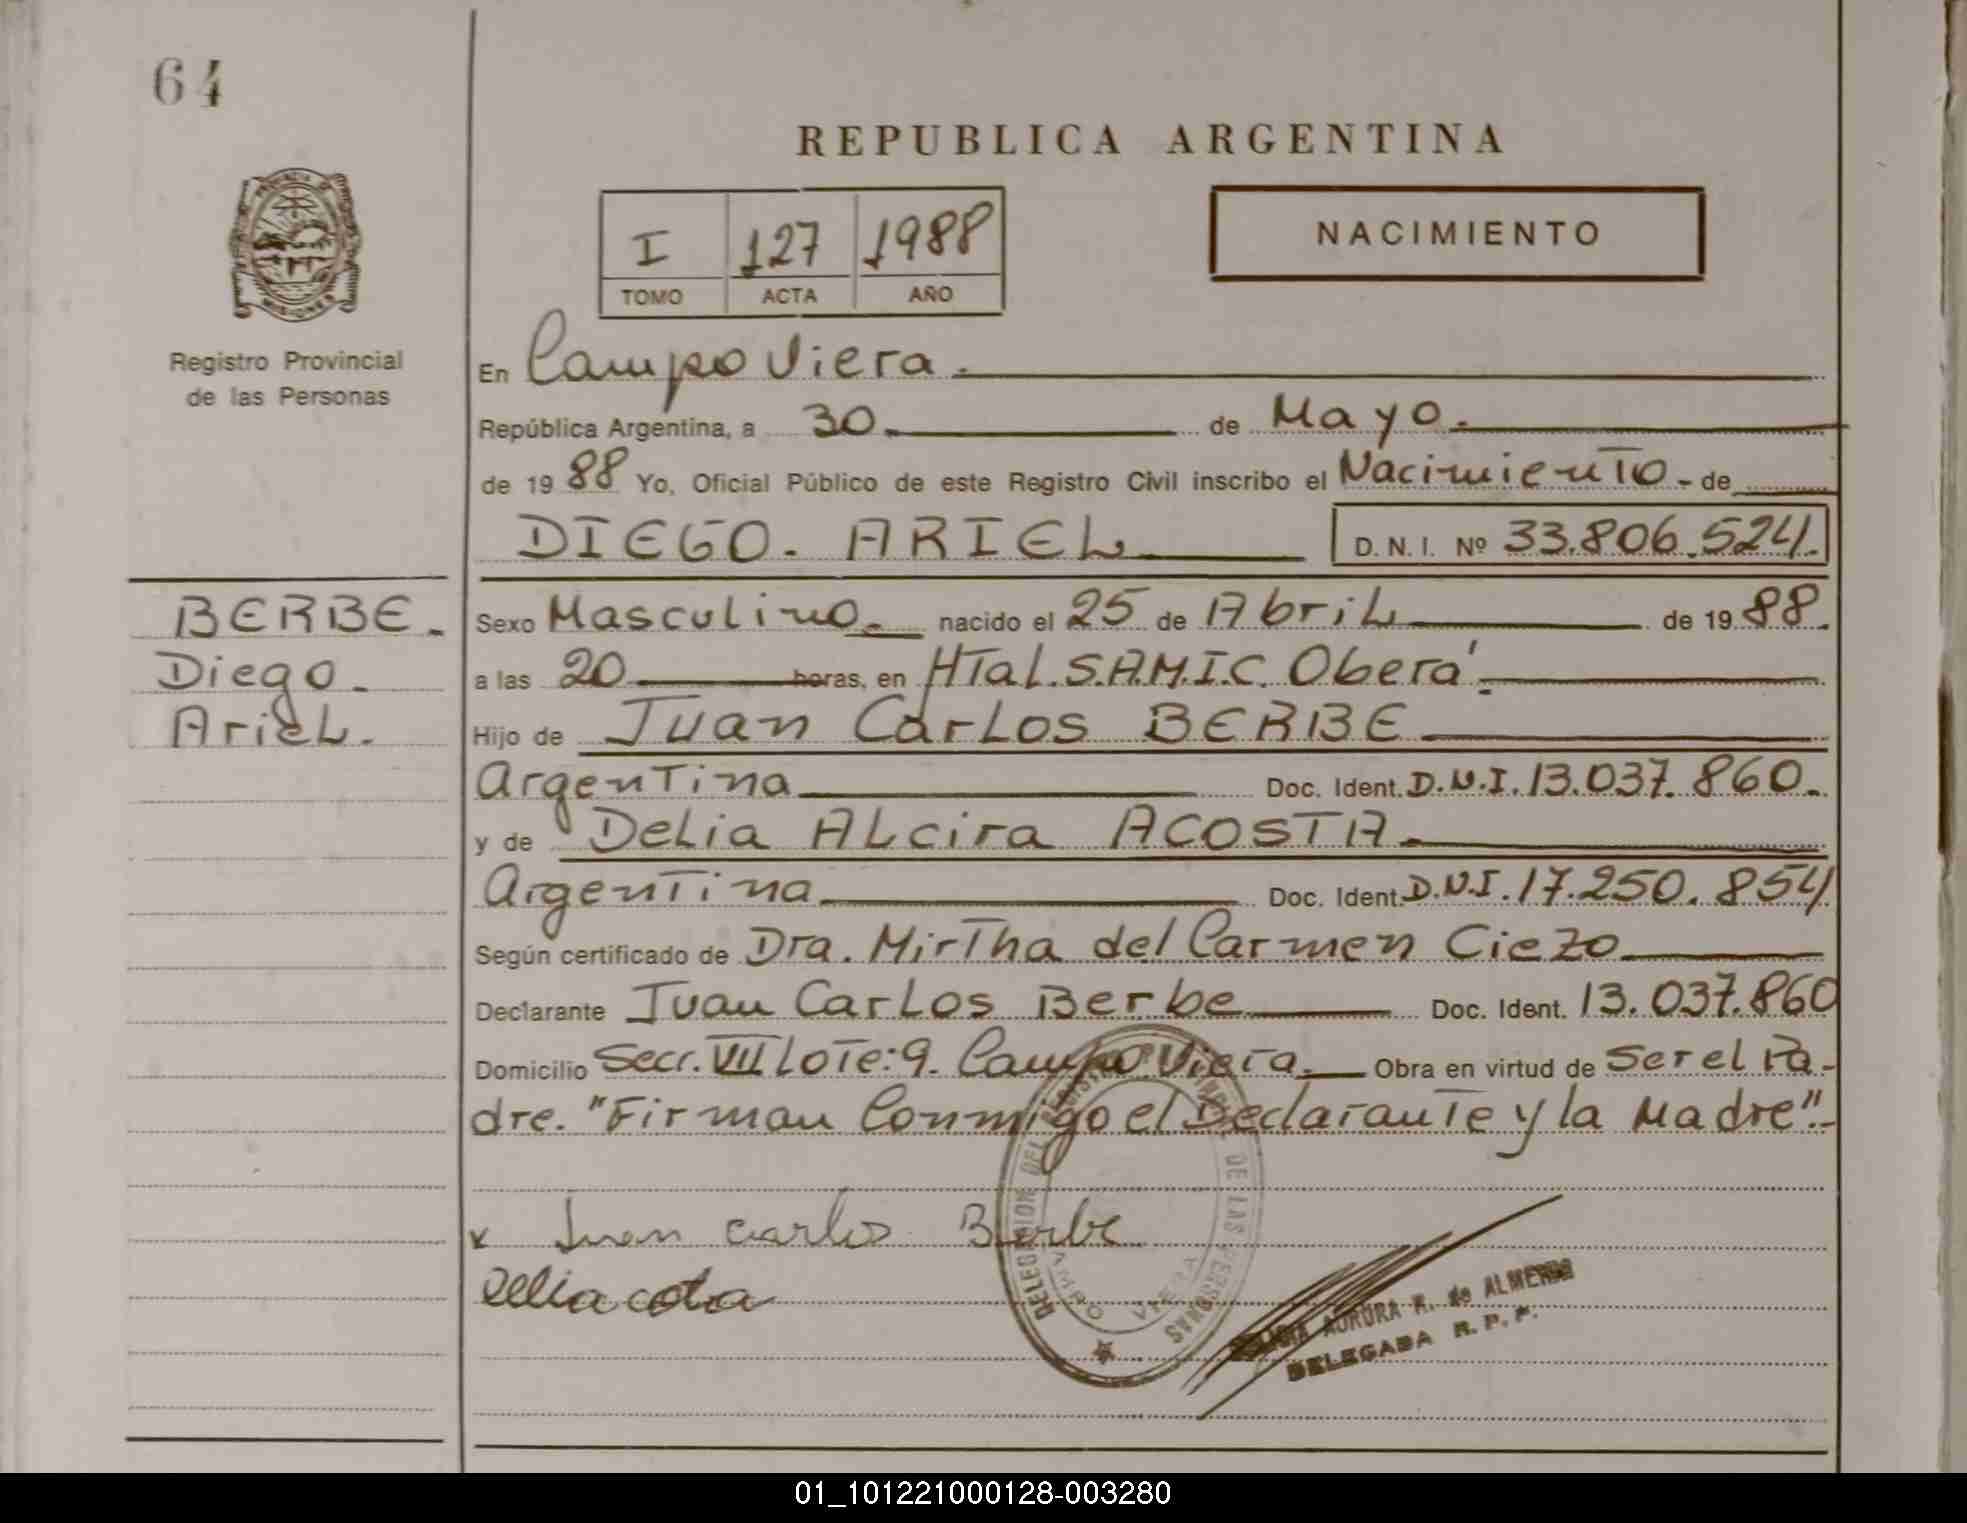 64
REPUBLICA ARGENTINA
NACIMIENTO
I 127 1988
TOMO ACTA AÑO
PROVINCIA DE MISIONES
Registro Provincial
de las Personas
En Campo Viera.
República Argentina, a 30. de Mayo.
de 1988 Yo, Oficial Público de este Registro Civil inscribo el Nacimiento - de
DIEGO. ARIEL D. N. I. Nº 33.806.524.
BERBE.
Diego.
Ariel.
Sexo Masculino. nacido el 25 de Abril de 1988.
a las 20 horas, en HTal. S.A.M.I.C. Oberá.
Hijo de Juan Carlos BERBE
Argentina Doc. Ident. D.N.I. 13.037.860.
y de Delia Alcira ACOSTA.
Argentina Doc. Ident. D.N.I. 17.250.854
Según certificado de Dra. Mirtha del Carmen Ciezo
Declarante Juan Carlos Berbe Doc. Ident. 13.037.860
Domicilio Secc. VII Lote: 9. Campo Viera. Obra en virtud de Ser el Pa-
dre. "Firman Conmigo el Declarante y la Madre".-
x Juan Carlos Berbe
Delia
DELEGACION DEL REGISTRO PROVINCIAL DE LAS PERSONAS
CAMPO VIERA
AURORA R. de ALMEIDA
DELEGADA R. P. P.
01_101221000128-003280